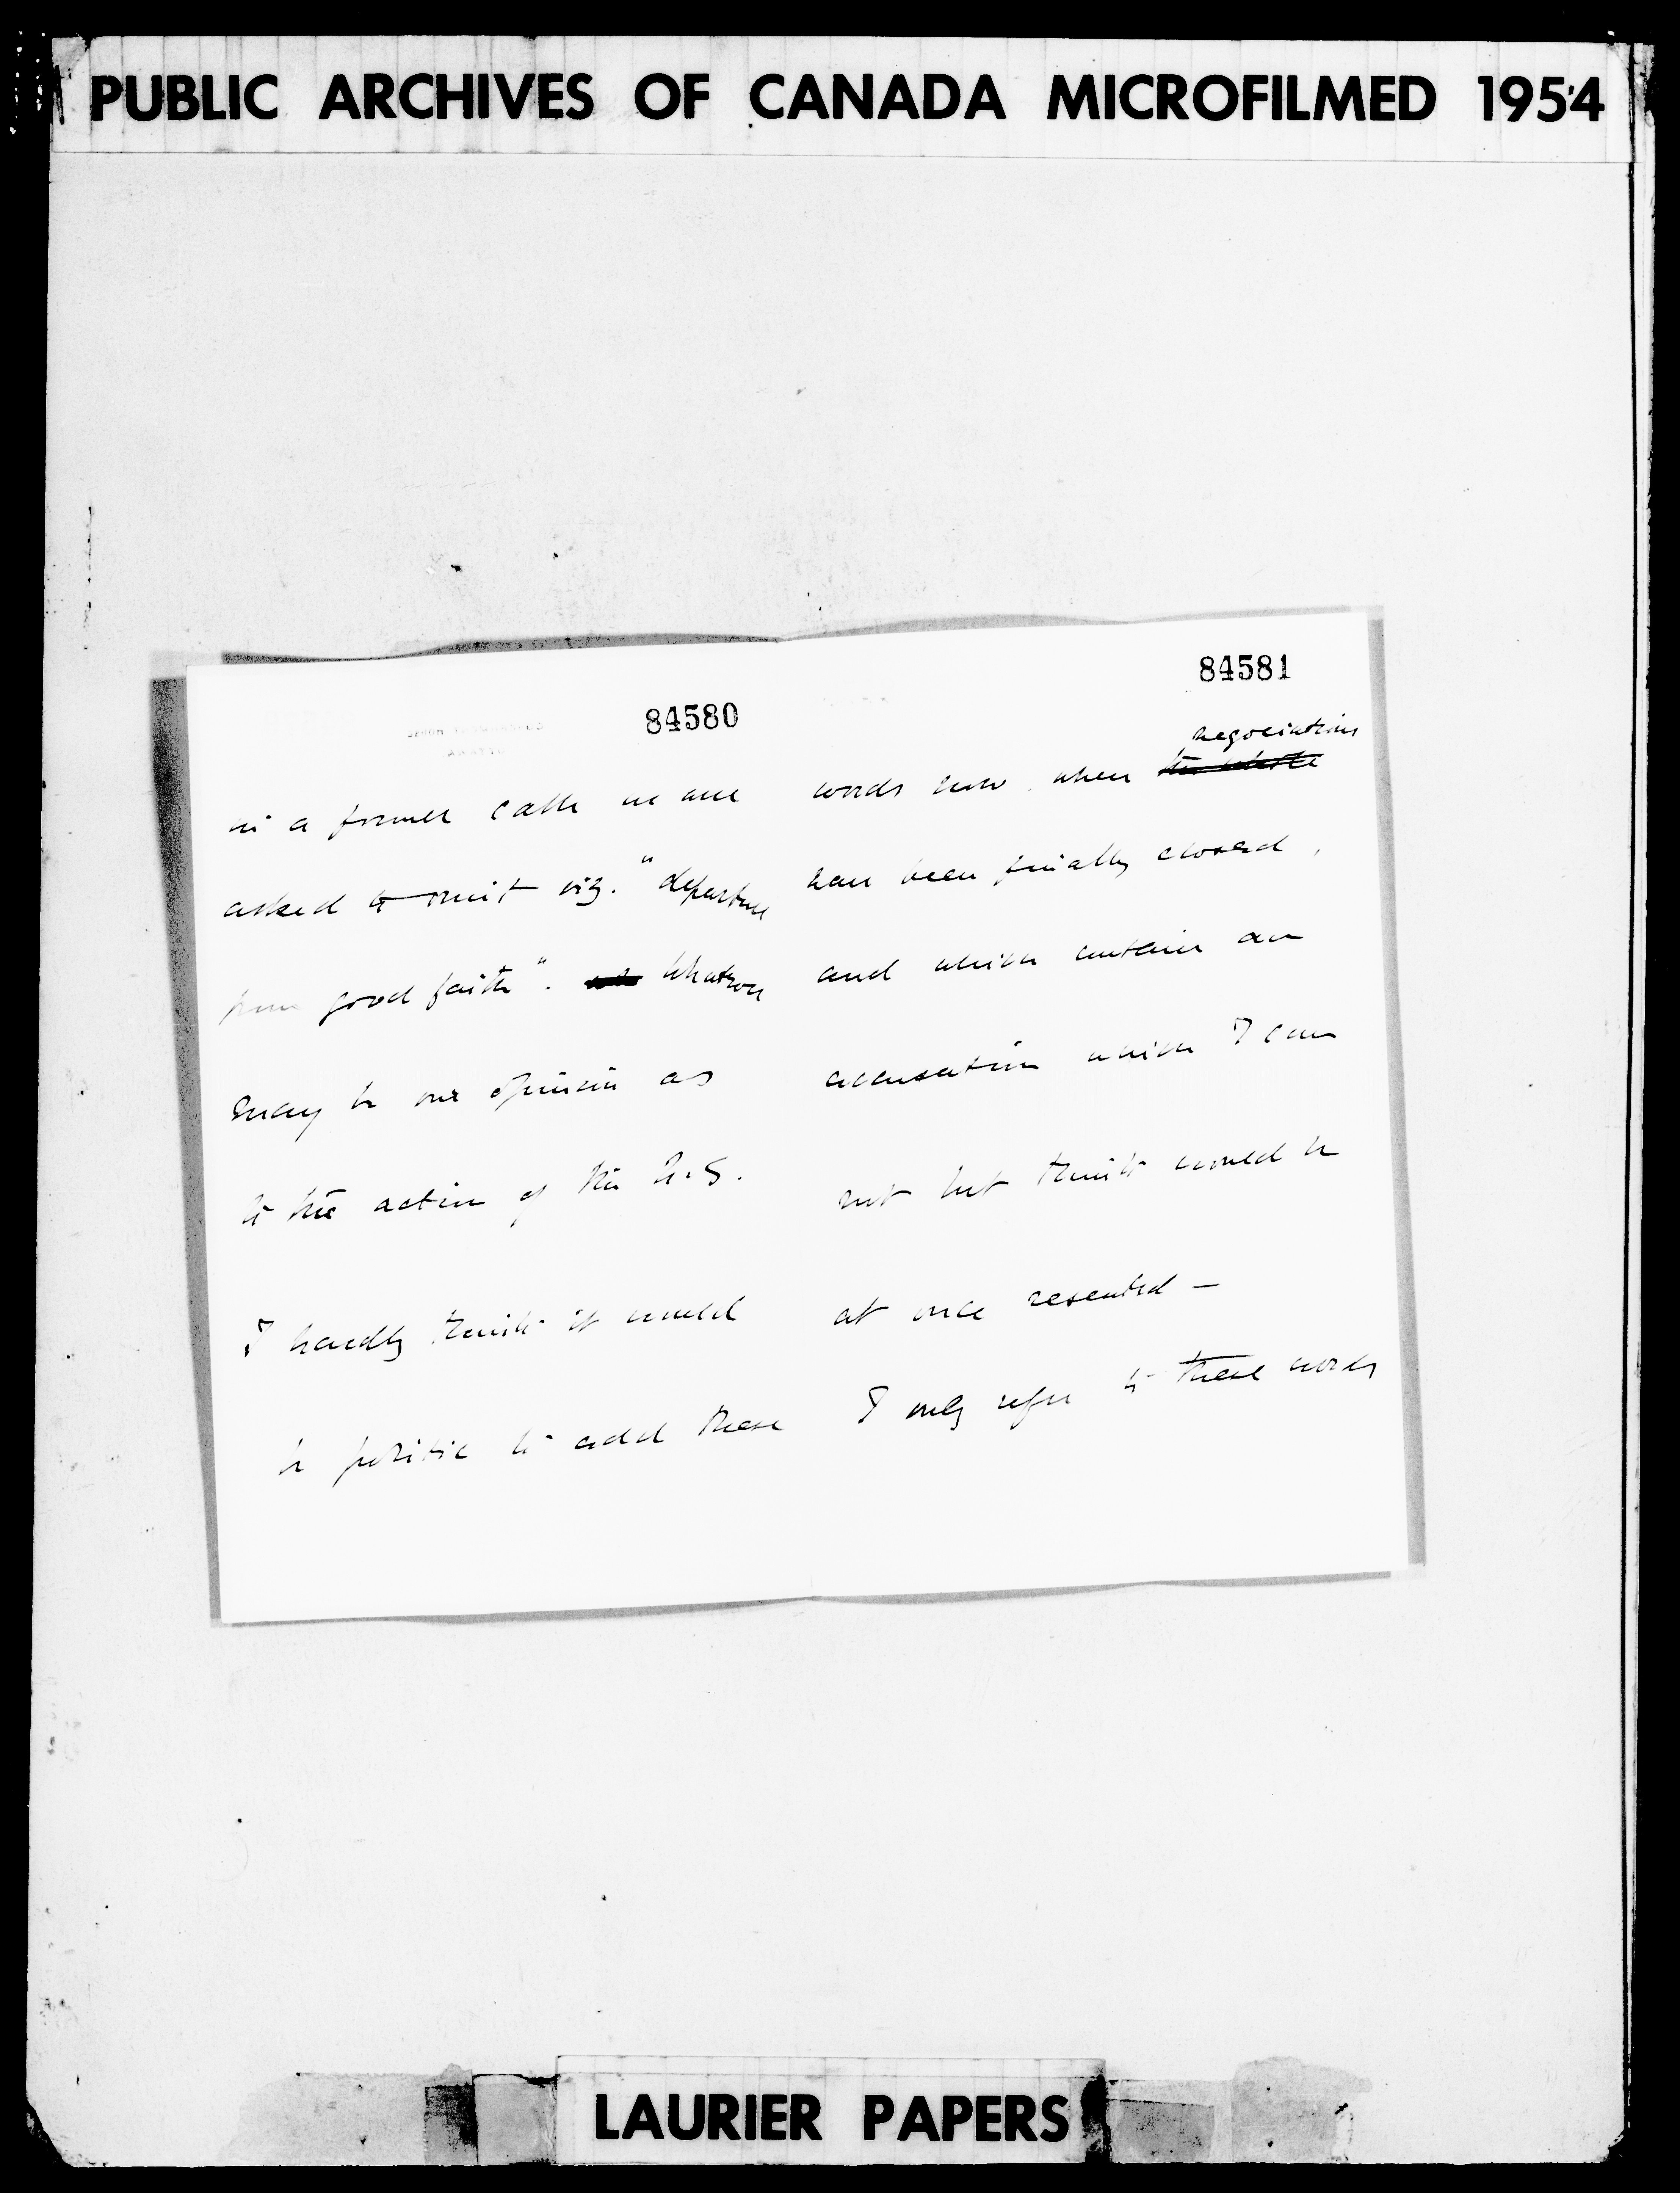 PUBLIC ARCHIVES OF CANADA MICROFILMED 1954
84580
in a former cable we were
asked to omit viz. "departure
from good faith". Whatever
may be our opinion as
to the action of the U.S.
I hardly think it would
be politic to add these
84581
negociations
words now when the whole
have been finally closed,
and which contain an
accusation which I can
not but think would be
at once resented —
I only refer to these words
LAURIER PAPERS